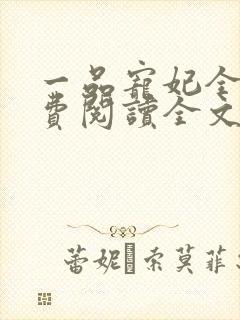 一品寵妃全
費閱讀全文
蕾妮·索莫菲